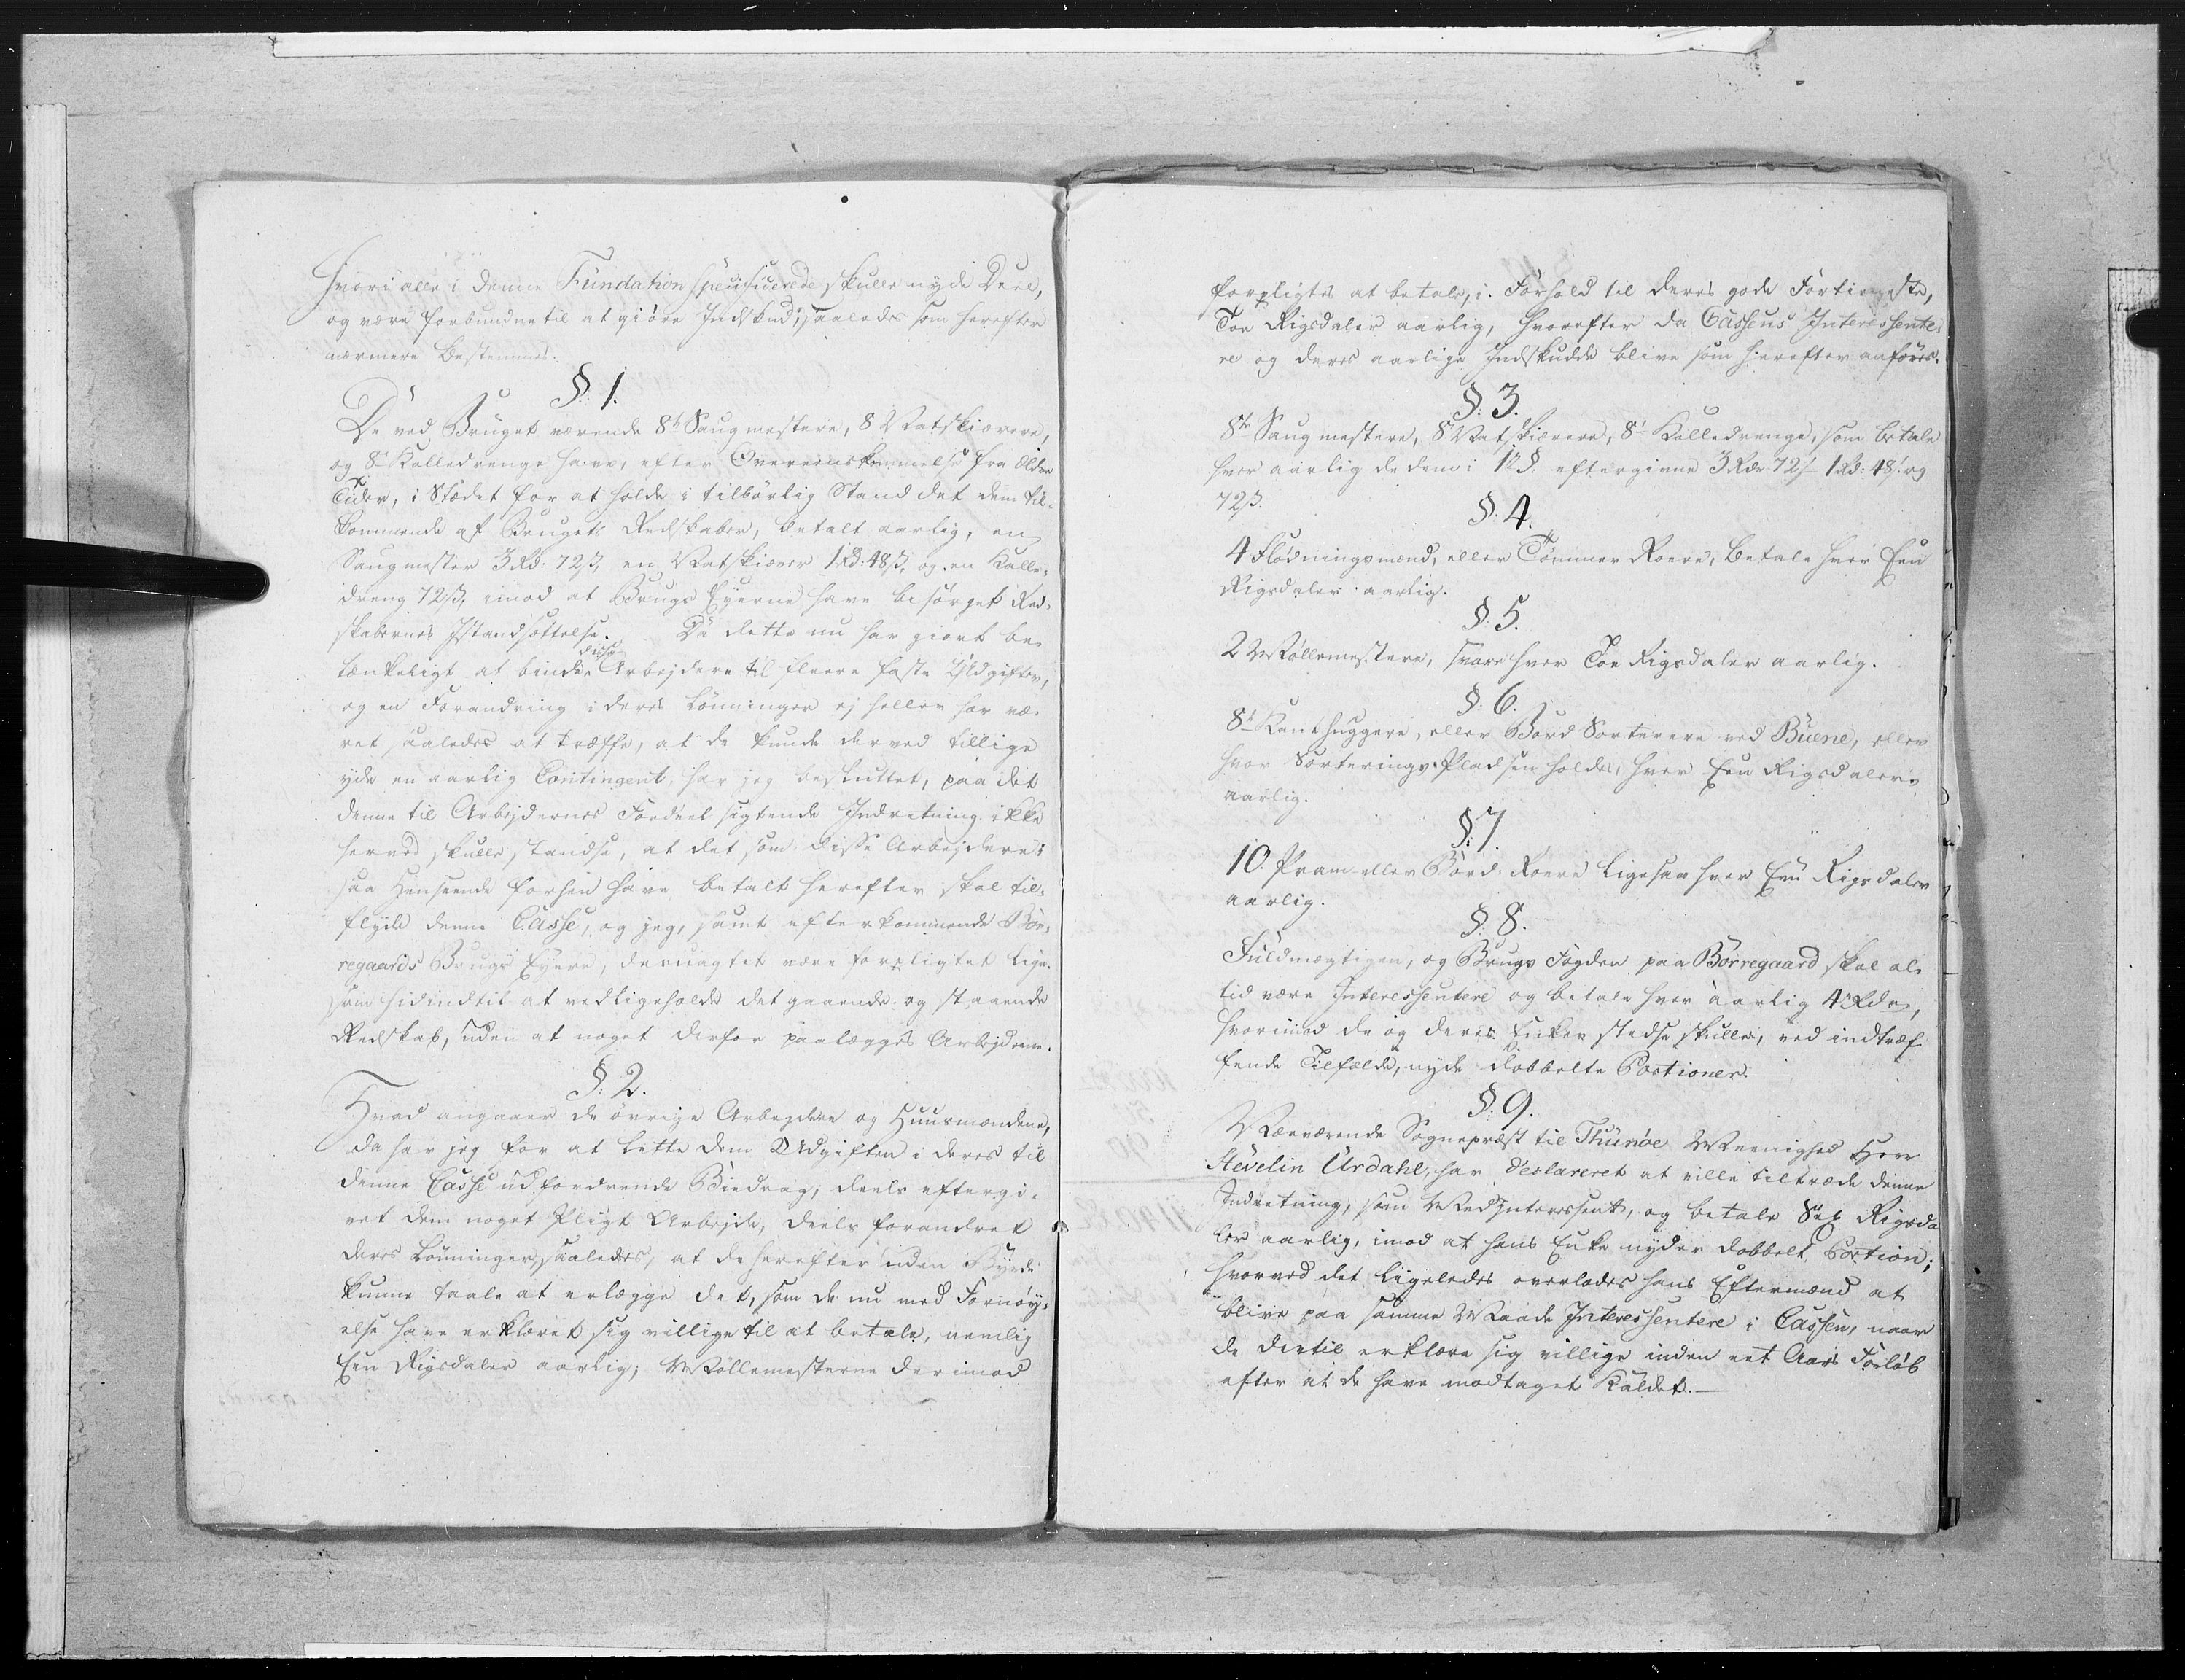 Hvori alle i denne Fundation specificerede skulle nyde Deel,
og være forbundne til at giøre Indskud, saaledes som herefter
nærmere bestemmes.
§: 1.
De ved Bruget værende 8te Saugmestere, 8 Vatskiærere,
og 8te Kalledrenge have, efter Overeenskommelse fra ældre
Tider, i Stædet for at holde i tilbørlig Stand det dem til-
kommende af Brugets Redskaber, betalt aarlig, en
Saugmester 3 Rd: 72 ß, en Vatskiærer 1 Rd: 48 ß, og en Kalle-
dreng 72 ß, imod at Brugs Eyerne have besørget Red-
skabernes Istandsættelse. Da dette nu har giort be-
tænkeligt at binde disse Arbejdere til fleere faste Udgifter,
og en Forandring i deres Lønninger ej heller har væ-
ret saaledes at træffe, at de kunde derved tillige
yde en aarlig Contingent, har jeg besluttet, paa det
denne til Arbejdernes Fordeel sigtende Indretning ikke
herved skulle standse, at det som disse Arbejdere i
saa Henseende forhen have betalt herefter skal til-
flyde denne Casse, og jeg, samt efterkommende Bor-
regaards Brugs Eyere, desuagtet være forpligtet lige-
som hidindtil at vedligeholde det gaaende og staaende
Redskab, uden at noget derfor paalægges Arbejderne.
§: 2.
Hvad angaaer de øvrige Arbejdere og Huusmændene,
da har jeg for at lette dem Udgiften i deres til
denne Casse udfordrende Biedrag, deels eftergi-
vet dem noget Pligt Arbejde, deels forandret
deres Lønninger saaledes, at de herefter uden Byrde
kunne taale at erlægge det, som de nu med Fornøy-
else have erklæret sig villige til at betale, nemlig
Een Rigsdaler aarlig; Møllemesterne derimod
forpligtes at betale, i Forhold til deres gode Fortieneste,
Toe Rigsdaler aarlig, hvorefter da Cassens Interessente-
re og deres aarlige Indskudde blive som herefter anføres.
§: 3.
8te Saugmestere, 8 Vatskiærere, 8te Kalledrenge, som betale
hver aarlig de dem i 1te §: eftergivne 3 Rdr 72 ß 1 Rd: 48 ß og
72 ß.
§: 4.
4 Flødningsmænd, eller Tømmer Roere, betale hver Een
Rigsdaler aarlig.
§: 5.
2 Møllemestere, svare hver Toe Rigsdaler aarlig.
§: 6.
8te Kanthuggere, eller Bord Sorterere ved Buene, eller
hvor Sorterings-Pladsen holdes, hver Een Rigsdaler
aarlig.
§: 7.
10. Pram eller Bord Roere ligesaa hver Een Rigsdaler
aarlig.
§: 8.
Fuldmægtigen, og Brugs Fogden paa Borregaard skal al-
tid være Interessentere og betale hver aarlig 4 Rdr,
hvorimod de og deres Enker stedse skulle, ved indtræf-
fende Tilfælde, nyde dobbelte Portioner.
§: 9.
Nærværende Sognepræst til Thunøe Meenighed Herr
Hevelin Urdahl, har declareret at ville tiltræde denne
Indretning, som MedInteressent, og betale Sex Rigsda
ler aarlig, imod at hans Enke nyder dobbelt Portion;
hvorved det ligeledes overlades hans Eftermænd at
blive paa samme Maade Interessentere i Cassen, naar
de dertil erklære sig villige inden eet Aars Forløb
efter at de have modtaget Kaldet.